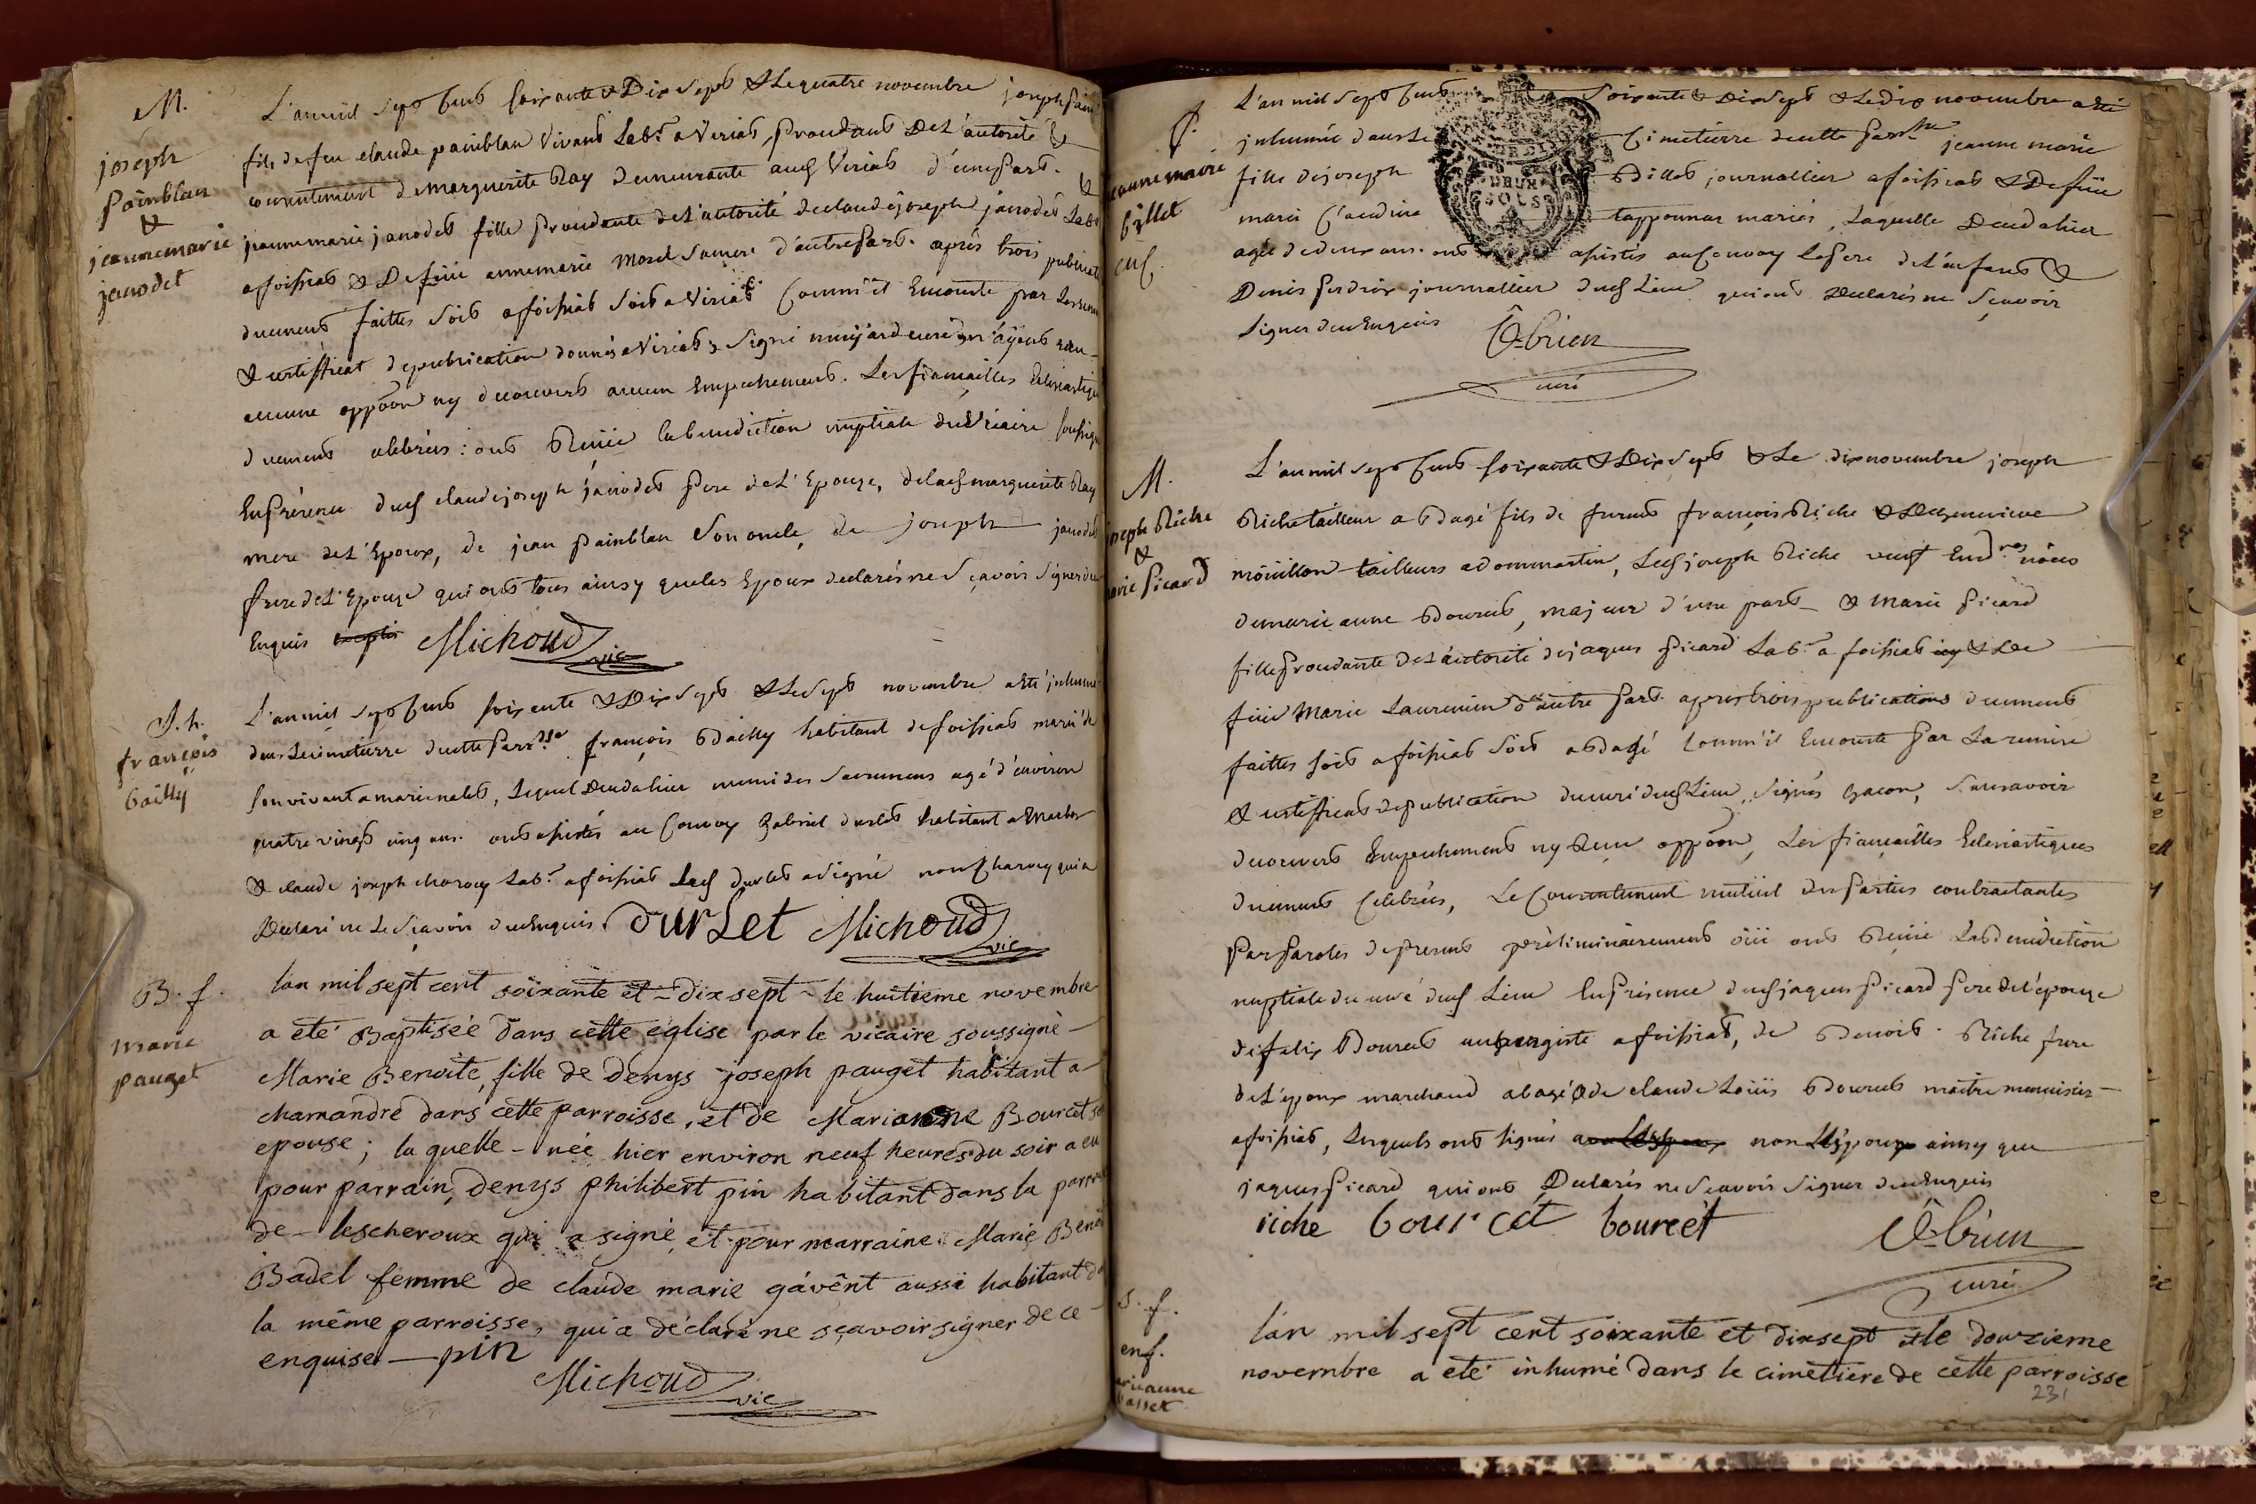 M.
joseph
painblan
&
jeanne marie
janodet
L'an mil sept Cens soixante & Dix sept & Le quatre novembre joseph pain
fils de feu claude painblan vivant Lab.r a Viriat, proudant De L'autorité &
consentement de marguerite Ray demeurante aud Viriat d'une part. &
jeanne marie janodet fille proudante de L'autorité de claude joseph janodet Lab
a foissiat & De füe anne marie morel sa mere d'autre part. aprés trois publicat
duement faittes soit a foissiat soit a Viriat Comm'il Enconste par
& certifficat de publication donnés a Viriat & signé curé n'ayant
aucune oppoon ny decouvert aucun Empechement. Les fiançailles Eclesiastiqu
duement celebrées : ont Reçüe la benediction nuptiale du Vicaire soussign
En présence dud claude joseph janodet pere de L'Epouze, de lad marguerite Ray
mere de L'Epoux, de jean painblan son oncle, de joseph janodet
frere de L'Epouze qui ont tous ainsy que les Epoux declarés ne sçavoir signer de
Enquis Michoud
vic
S. h.
françois
bailly
L'an mil sept Cens soixante & Dix sept & Le sept novembre a Eté inhumé
dans Le cimetierre de cette parr.sse françois Bailly habitant de foissiat marié de
son vivant a marie nalet, Lequel Decedahier muni des sacremens agé d'environ
quatre vingt cinq ans. ont assistés au Convoy gabriel durlet habitant a
& claude joseph charvey Lab.r a foissiat Led durlet a signé non charvey qui a
Declaré ne Le sçavoir de ce Enquis. durLet Michoud
vic
B. f.
marie
pauget
lan mil sept cent soixante et - dix sept - le huitieme novembre
a eté Baptisée dans cette eglise par le vicaire soussigné -
Marie Benoite, fille de denys joseph pauget habitant a
chamandré dans cette parroisse, et de Marianne Bourcet
epouse ; la quelle - née hier environ neuf heures du soir a eu
pour parrain, denys philibert pin habitant dans la parro
de - lescheroux qui a signé, et pour marraine Marie Beno
Badel femme de claude marie gavênt aussi habitant d
la même parroisse, qui a déclaré ne sçavoir signer de ce -
enquise - pin
Michoud
vic
S.
jeanne marie
billet
enf.
L'an mil sept Cens soixante & Dix sept & Le dix novembre a Eté
inhumée dans Le Cimetierre de cette parr.sse jeanne marie
fille de joseph Billet journallier a foissiat & De füe
marie Claudine tapponnar mariés, Laquelle Decedahier
agée de deux ans. ont assistés au Convoy le pere de L'enfant &
Denis perdrix journallier dud Lieu qui ont Declarés ne sçavoir
signer de ce Enquis Ô-brien
curé
M.
joseph Riche
&
marie picard
L'an mil sept Cens soixante & Dix sept & Le dix novembre joseph
Riche tailleur a Bagé fils de furent françois Riche & De genevieve
moüillon tailleurs a dommartin, Led joseph Riche veuf En nôces
de marie anne Bourcet, majeur d'une part - & marie picard
fille proudante de L'autorité de jaques picard Lab.r a foissiat & De
füe Marie Laurencin d'autre part. apres trois publications duement
faittes soit a foissiat soit a Bagé Comm'il Enconste par La remise
& certifficat de publication du curé dud Lieu, signés gacon, sans avoir
decouvert Empechement ny Reçu oppoon, Les fiançailles Eclesiastiques
duement Celebrées, Le Consentement mutüel des parties contractantes
par paroles de present préliminairement oüi ont Reçüe La Benediction
nuptiale du curé dud Lieu En présence dud jaques picard pere de L'épouze
de felix Bourcet aubergiste a foissiat, de Benoit Riche frere
de L'époux marchand a bagé & de claude Loüis Bourcet maitre menuisier -
a foissiat, Lesquels ont signés non Les Epoux ainsy que
jaques picard qui ont Declarés ne sçavoir signer de ce Enquis
riche bourcet bourcet
Ô-brien
curé
S. f.
enf.
marianne
passet
lan mil sept cent soixante et dix sept et le douzieme
novembre a eté inhumé dans le cimetiere de cette parroisse
231